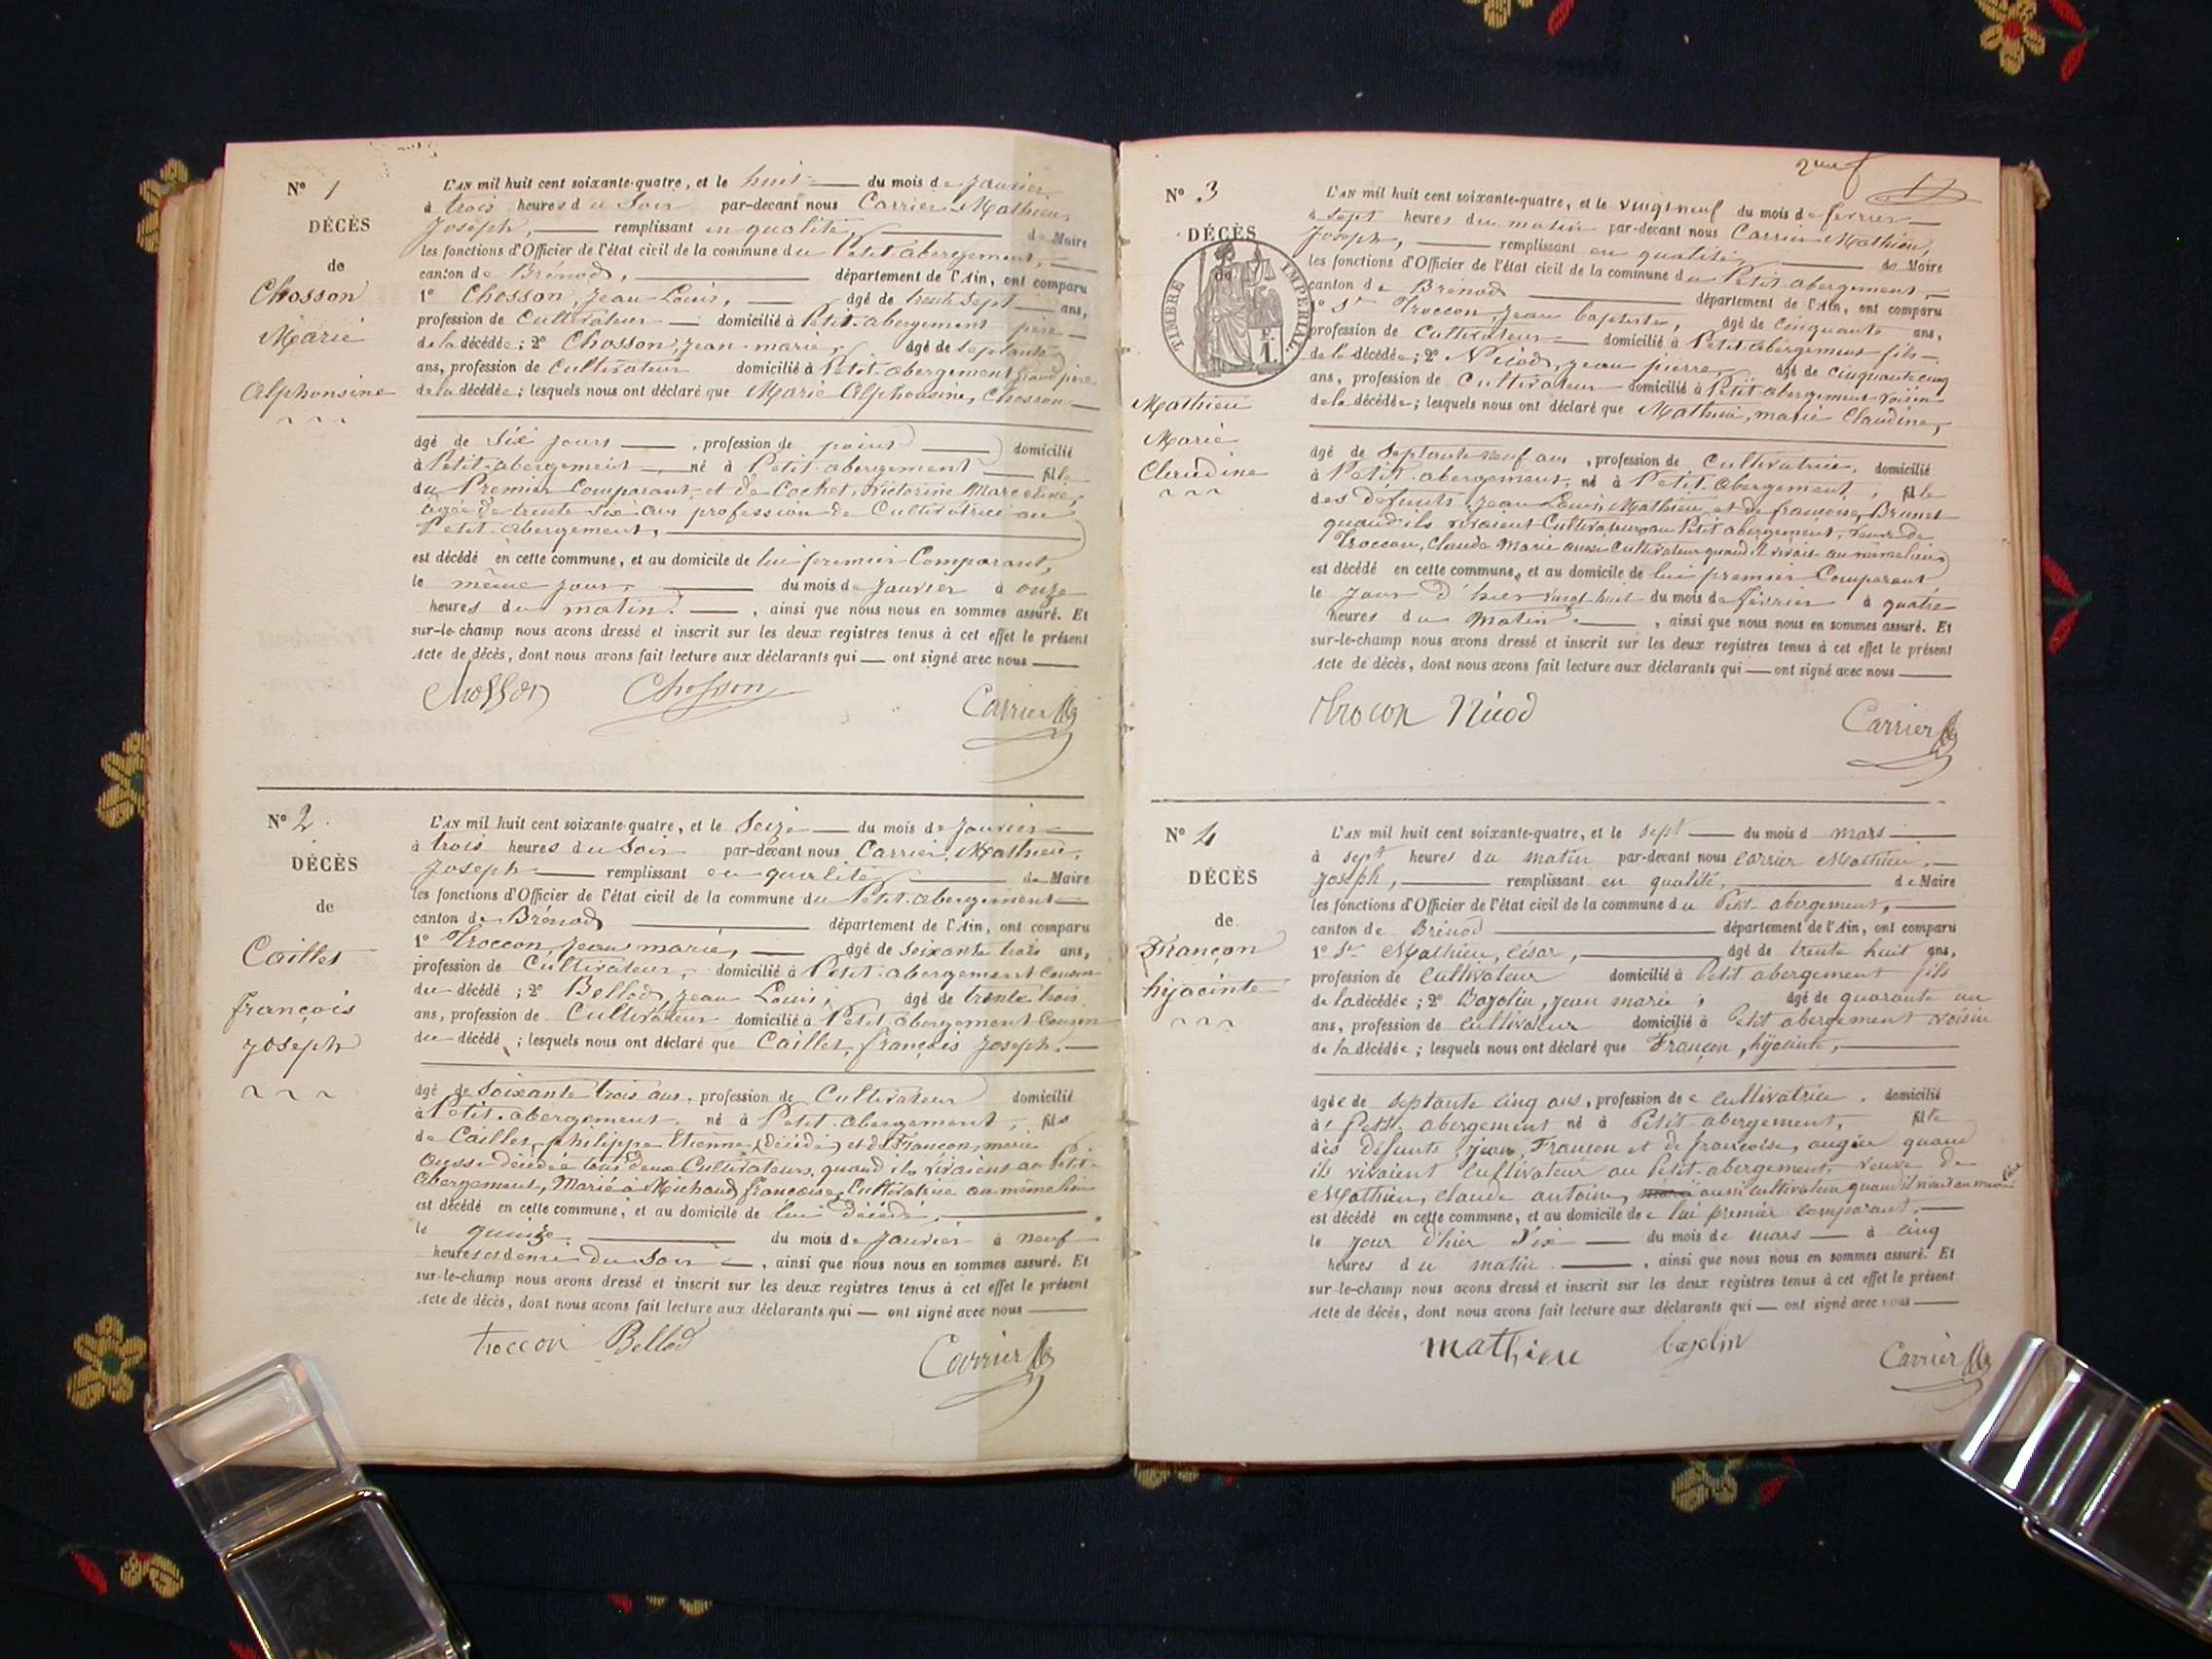 N° 1
DÉCÈS
de
Chosson
Marie
Alphonsine
L'AN mil huit cent soixante-quatre, et le huit du mois de Janvier
à trois heures du Soir par-devant nous Carrier Mathieu
Joseph, remplissant en qualité, de Maire
les fonctions d'Officier de l'état civil de la commune du Petit abergement,
canton de Brénod, département de l'Ain, ont comparu
1° Chosson, Jean Louis, âgé de trente sept ans,
profession de Cultivateur domicilié à Petit-abergement père
de la décédée; 2° Chosson, Jean marie, âgé de septante
ans, profession de Cultivateur domicilié à Petit-abergement grand père
de la décédée; lesquels nous ont déclaré que Marie Alphonsine, Chosson
âgé de Six jours, profession de point domicilié
à Petit-abergement né à Petit-abergement fille
du Premier Comparant, et de Cochet, Victorine Marceline,
âgée de trente six ans profession de Cultivatrice au
Petit-abergement,
est décédé en cette commune, et au domicile de lui premier Comparant,
le même jour, du mois de Janvier à onze
heures du matin, ainsi que nous nous en sommes assuré. Et
sur-le-champ nous avons dressé et inscrit sur les deux registres tenus à cet effet le présent
Acte de décès, dont nous avons fait lecture aux déclarants qui ont signé avec nous
Chosson Chosson Carrier
N° 2
DÉCÈS
de
Caillet
françois
Joseph
L'AN mil huit cent soixante-quatre, et le Seize du mois de Janvier
à trois heures du Soir par-devant nous Carrier, Mathieu,
Joseph remplissant en qualité de Maire
les fonctions d'Officier de l'état civil de la commune du Petit-abergement
canton de Brénod département de l'Ain, ont comparu
1° Troccon Jean marie, âgé de soixante trois ans,
profession de Cultivateur, domicilié à Petit-abergement Cousin
du décédé; 2° Bellod, Jean Louis, âgé de trente trois
ans, profession de Cultivateur domicilié à Petit abergement Cousin
du décédé; lesquels nous ont déclaré que Caillet, françois Joseph,
âgé de soixante trois ans, profession de Cultivateur domicilié
à Petit-abergement né à Petit-abergement, fils
de Caillet, philippe Etienne (décédé) et de Françon, marie
aussi décédée tous deux Cultivateurs, quand ils vivaient au Petit-
abergement, Marié à Michaud françoise, Cultivatrice au même lieu
est décédé en cette commune, et au domicile de lui décédé,
le quinze du mois de Janvier à neuf
heures et demie du Soir, ainsi que nous nous en sommes assuré. Et
sur-le-champ nous avons dressé et inscrit sur les deux registres tenus à cet effet le présent
Acte de décès, dont nous avons fait lecture aux déclarants qui ont signé avec nous
troccon Bellod Carrier
N° 3
DÉCÈS
de
TIMBRE IMPÉRIAL
1.
Mathieu
Marie
Claudine
L'AN mil huit cent soixante-quatre, et le vingt neuf du mois de février
à sept heures du matin par-devant nous Carrier Mathieu,
Joseph, remplissant en qualité, de Maire
les fonctions d'Officier de l'état civil de la commune du Petit abergement,
canton de Brénod département de l'Ain, ont comparu
1° Sr Troccon, Jean baptiste, âgé de Cinquante ans,
profession de Cultivateur domicilié à Petit-abergement fils
de la décédée; 2° Nicod, Jean pierre, âgé de cinquante cinq
ans, profession de Cultivateur domicilié à Petit abergement voisin
de la décédée; lesquels nous ont déclaré que Mathieu, marie Claudine,
âgé de Septante neuf ans, profession de Cultivatrice, domicilié
à Petit abergement, né à Petit-abergement, fille
des defunts, Jean Louis Mathieu et de francoise, Brunet
quand ils vivaient Cultivateurs au Petit abergement, veuve de
Troccon, Claude Marie aussi Cultivateur quand il vivait au même lieu
est décédé en cette commune, et au domicile de lui premier Comparant
le Jour d'hier vingt huit du mois de février à quatre
heures du Matin, ainsi que nous nous en sommes assuré. Et
sur-le-champ nous avons dressé et inscrit sur les deux registres tenus à cet effet le présent
Acte de décès, dont nous avons fait lecture aux déclarants qui ont signé avec nous
trocon Nicod Carrier
N° 4
DÉCÈS
de
Françon
hijacinte
L'AN mil huit cent soixante-quatre, et le sept du mois d mars
à sept heures du matin par-devant nous Carrier Mathieu,
Joseph, remplissant en qualité, de Maire
les fonctions d'Officier de l'état civil de la commune du Petit-abergement,
canton de Brénod département de l'Ain, ont comparu
1° Sr Mathieu, César, âgé de trente huit ans,
profession de Cultivateur domicilié à Petit abergement fils
de la décédée; 2° Bozolin, Jean marie, âgé de quarante un
ans, profession de Cultivateur domicilié à Petit abergement voisin
de la décédée; lesquels nous ont déclaré que Françon, hijacinte,
âgée de septante cinq ans, profession de cultivatrice. domicilié
à Petit-abergement né à Petit-abergement, fille
des défunts, Jean, Francon et de françoise, augier quand
ils vivaient Cultivateur au Petit-abergement, veuve de
Mathieu, claude antoine, aussi cultivateur quand il vivait au même lieu
est décédé en cette commune, et au domicile de lui premier comparant,
le jour d'hier Six du mois de mars à cinq
heures du matin, ainsi que nous nous en sommes assuré. Et
sur-le-champ nous avons dressé et inscrit sur les deux registres tenus à cet effet le présent
Acte de décès, dont nous avons fait lecture aux déclarants qui ont signé avec nous
mathieu Carrier